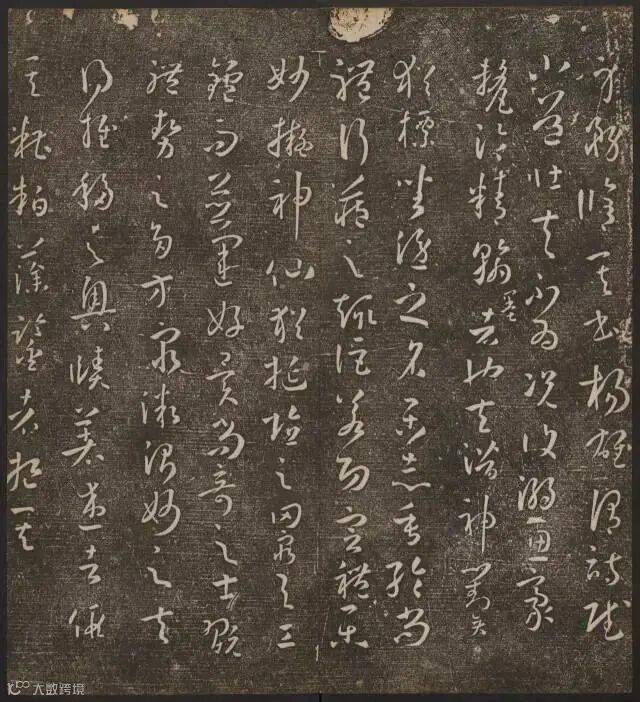 身務脩其本楊雄謂詩賦
小道壯夫不為況復溺思豪
釐淪精翰墨者也夫潛神對弈
猶標坐隱之名樂志垂綸尚
體行藏之趣詎若功宣禮樂
妙擬神仙猶埏埴之罔窮与工
鑪而並運好異尚奇之士翫
體勢之多方窮微測妙之夫
得推移之奧賾著述者假
其糟粕藻鑒者挹其
大数跨境